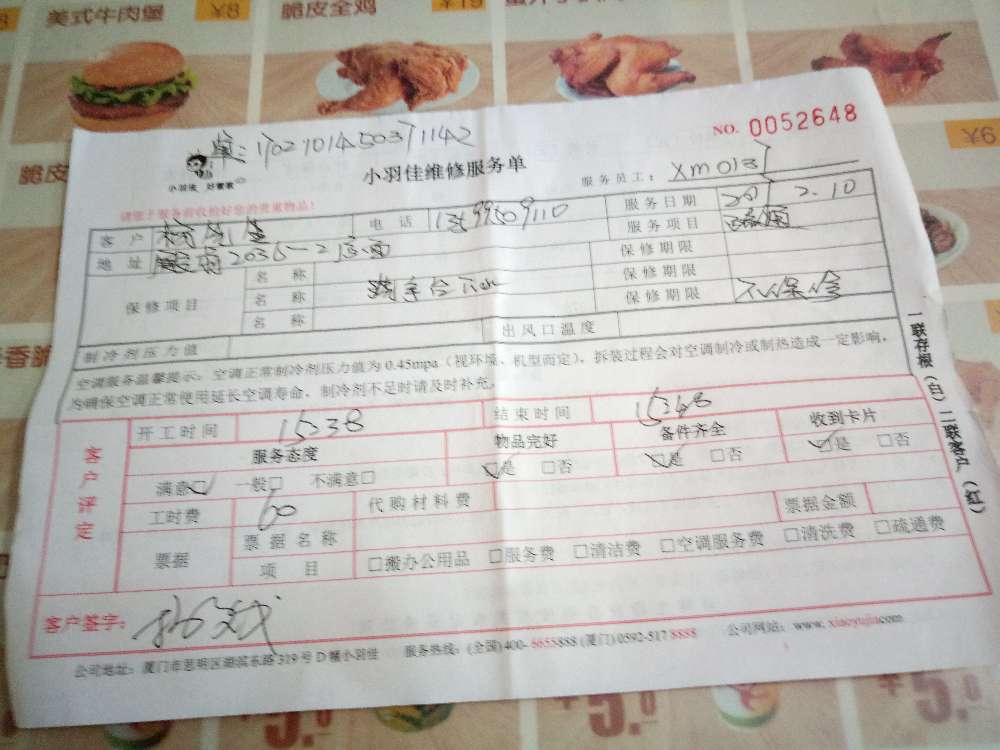 美式牛肉堡 ¥8 脆皮全鸡 ¥19
NO. 0052648
单:
小羽佳 好管家
小羽佳维修服务单
服务员工: XM013
请您于服务前收检好您的贵重物品!
客户 电话 服务日期 2.10
地址 服务项目
保修项目 名称 保修期限
名称 保修期限
名称 保修期限 不保修
制冷剂压力值 出风口温度
空调服务温馨提示:空调正常制冷剂压力值为0.45mpa(视环境、机型而定),拆装过程会对空调制冷或制热造成一定影响,
为确保空调正常使用延长空调寿命,制冷剂不足时请及时补充。
一联存根(白)二联客户(红)
客户评定
开工时间 15:38 结束时间 15:48
服务态度 物品完好 备件齐全 收到卡片
满意□ 一般□ 不满意□ □是 □否 □是 □否 □是 □否
工时费 60 代购材料费 票据金额
票据 票据名称
项目 □搬办公用品 □服务费 □清洁费 □空调服务费 □清洗费 □疏通费
客户签字:
公司地址:厦门市思明区湖滨东路319号D幢小羽佳 服务热线:(全国)400-6655888 (厦门)0592-517 8888 公司网站:www.xiaoyujia.com
脆皮
¥9
香脆
¥5.0
¥5.0